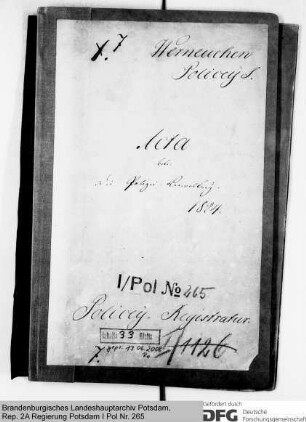 X. 7
Werneuchen
Policey S.
Acta
1824.
I/Pol № 265
Policey. Registratur.
Enthält 33 Blätter
gepr. 19.06.2000
1126
Brandenburgisches Landeshauptarchiv Potsdam,
Rep. 2A Regierung Potsdam I Pol Nr. 265
Gefördert durch
DFG Deutsche
Forschungsgemeinschaft